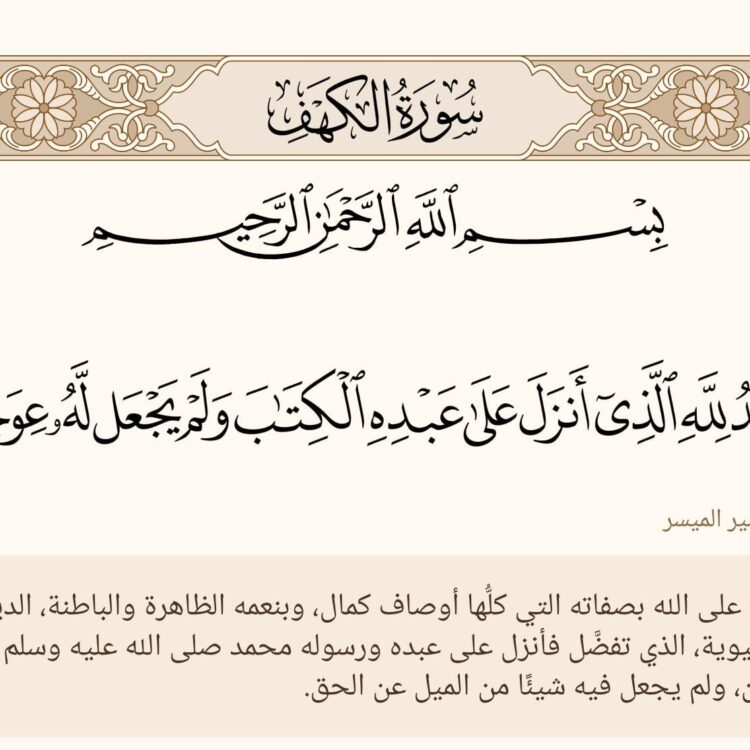 سُورَةُ الكَهْفِ
بِسْمِ ٱللَّهِ ٱلرَّحْمَٰنِ ٱلرَّحِيمِ
لِلَّهِ ٱلَّذِىٓ أَنزَلَ عَلَىٰ عَبْدِهِ ٱلْكِتَٰبَ وَلَمْ يَجْعَل لَّهُۥ
الميسر
على الله بصفاته التي كلُّها أوصاف كمال، وبنعمه الظاهرة والباطنة،
الذي تفضَّل فأنزل على عبده ورسوله محمد صلى الله عليه وسلم
ولم يجعل فيه شيئًا من الميل عن الحق.